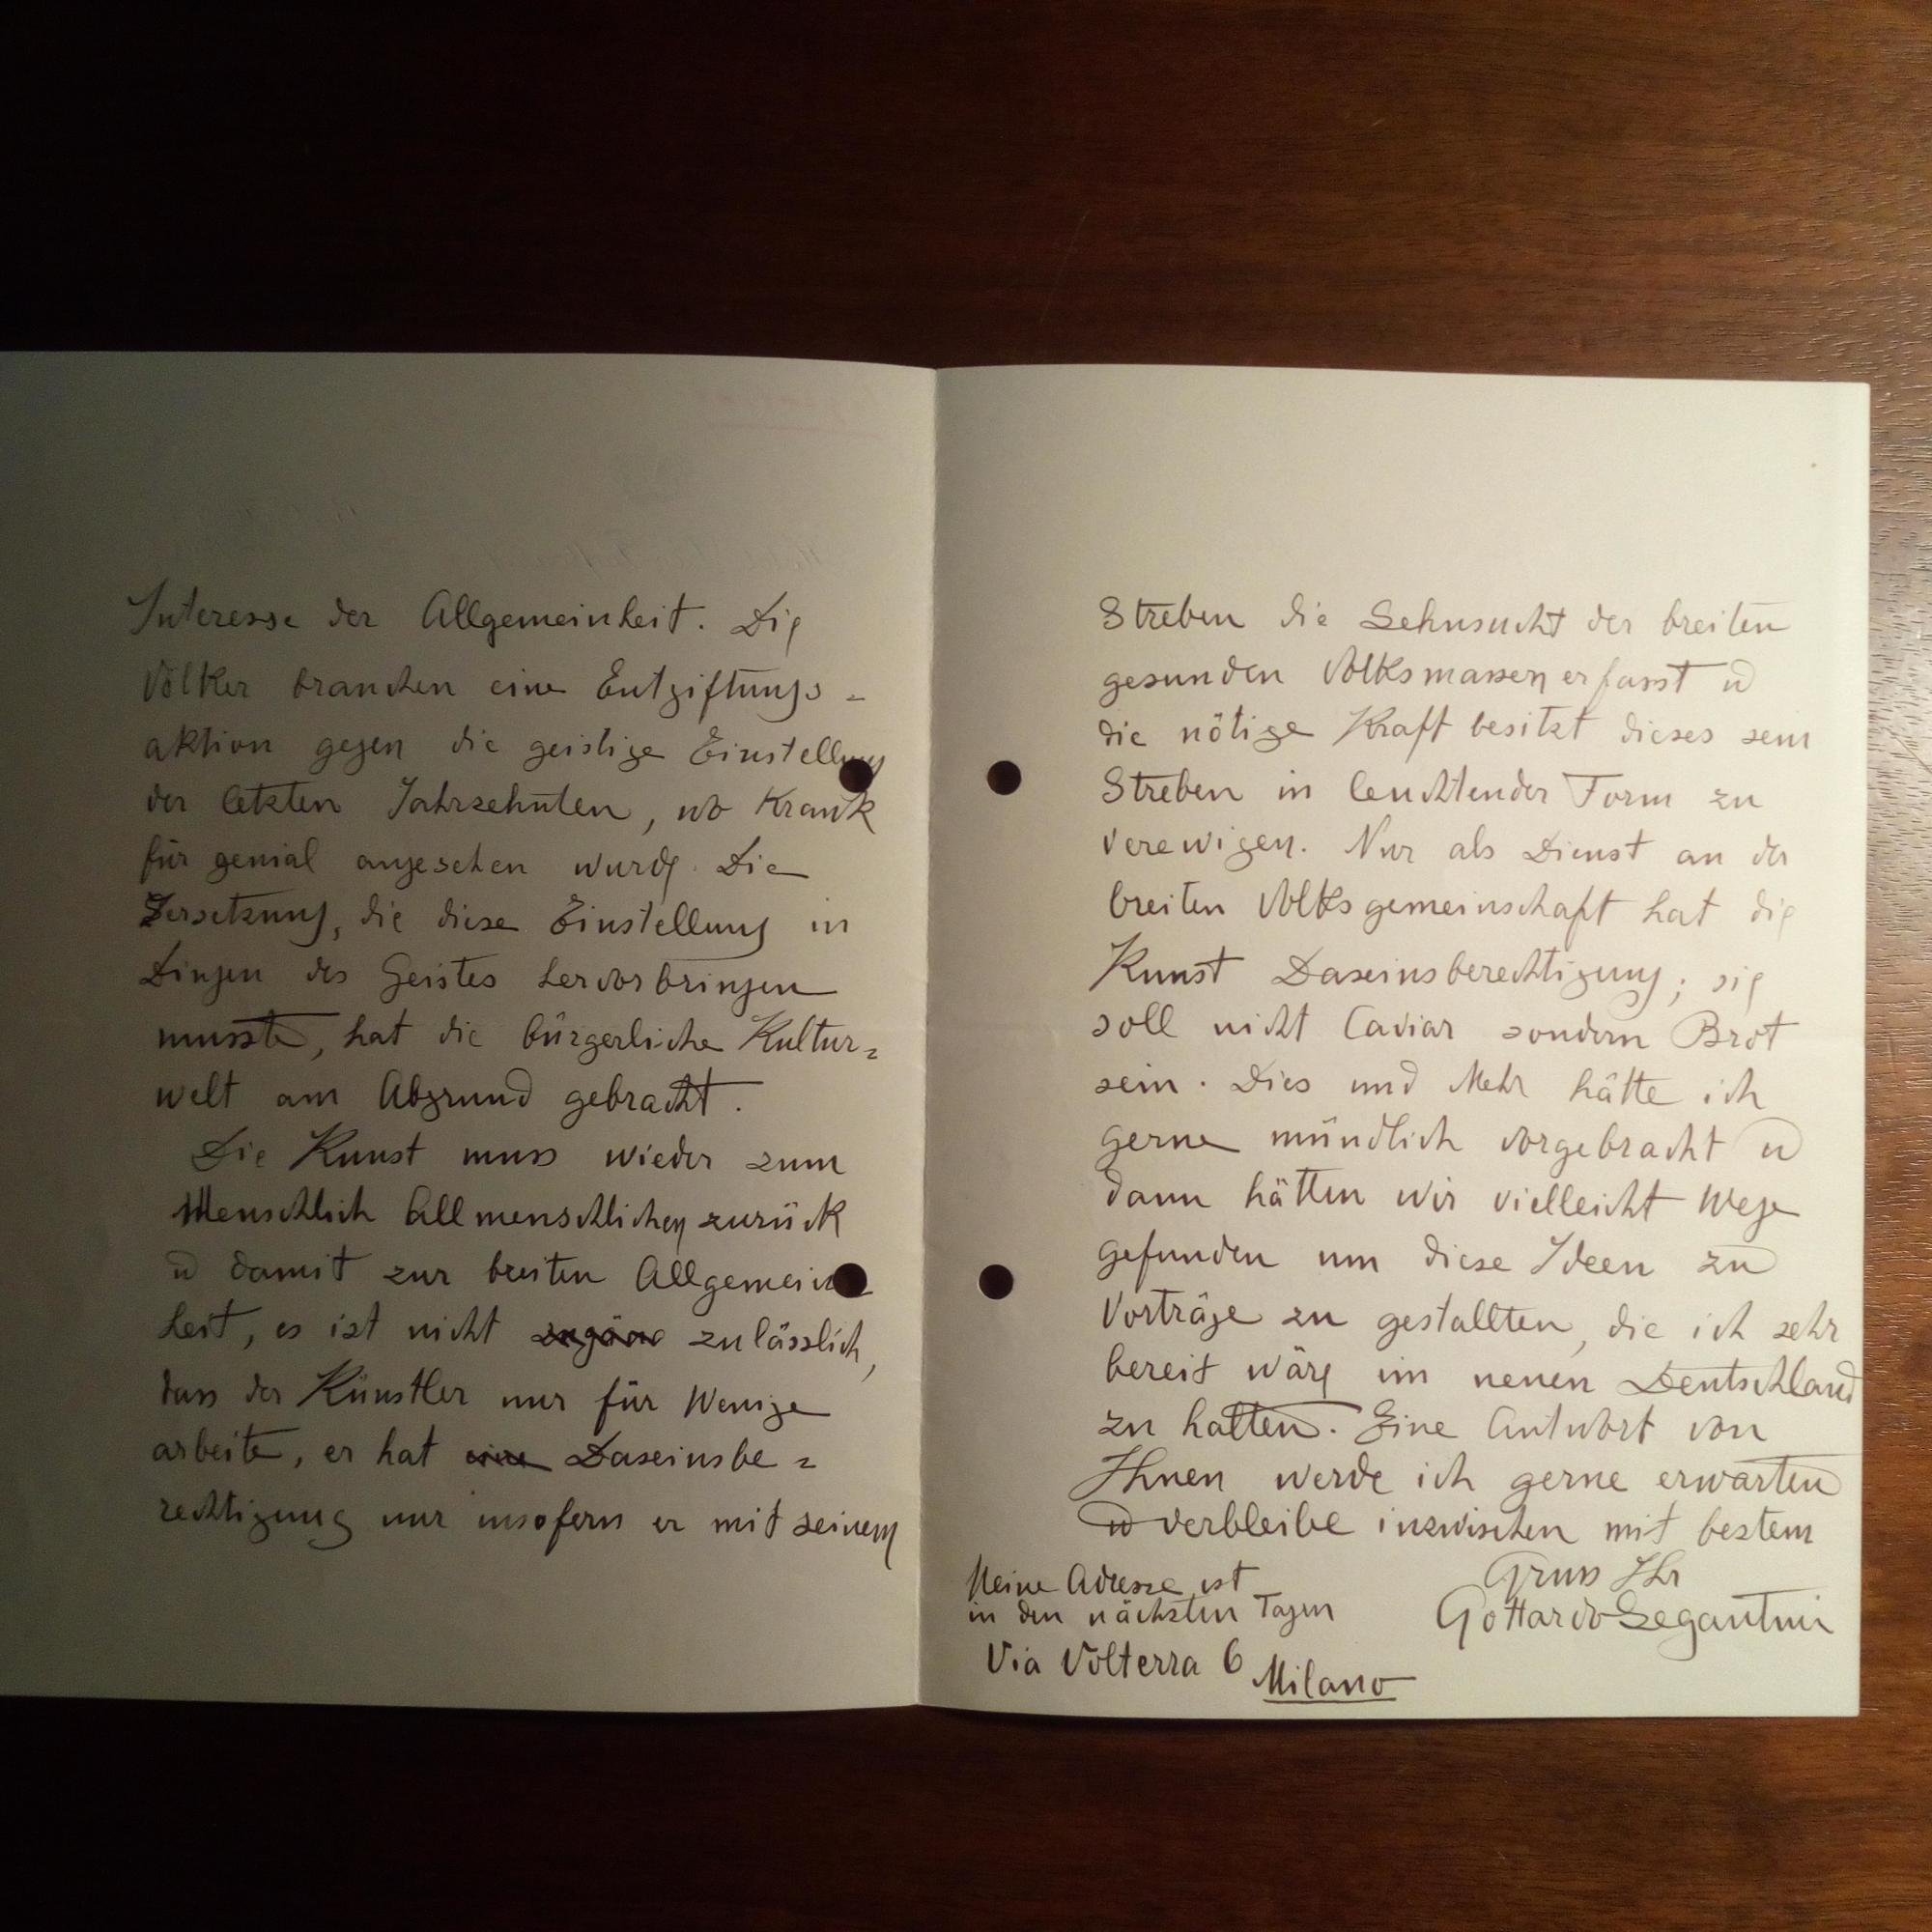 Interesse der Allgemeinheit. Die
Völker brauchen eine Entgiftungs=
aktion gegen die geistige Einstellung
der letzten Jahrzehnten, wo Krank
für genial angesehen wurde. Die
Zersetzung, die diese Einstellung in
Dingen des Geistes hervorbringen
musste, hat die bürgerliche Kultur=
welt am Abgrund gebracht.
Die Kunst muss wieder zum
Menschlich Allmenschlichen zurück
u damit zur breiten Allgemein
heit, es ist nicht zulässlich,
dass der Künstler nur für Wenige
arbeite, er hat eine Daseinsbe=
rechtigung nur insofern er mit seinem
Streben die Sehnsucht der breiten
gesunden Volksmassen erfasst u
die nötige Kraft besitzt dieses sein
Streben in leuchtender Form zu
verewigen. Nur als Dienst an der
breiten Volksgemeinschaft hat die
Kunst Daseinsberechtigung; sie
soll nicht Caviar sondern Brot
sein. Dies und Mehr hätte ich
gerne mündlich vorgebracht u
dann hätten wir vielleicht Wege
gefunden um diese Ideen zu
Vorträge zu gestallten, die ich sehr
bereit wäre im neuen Deutschland
zu halten. Eine Antwort von
Ihnen werde ich gerne erwarten
u verbleibe inzwischen mit bestem
Gruss Ihr
Gottardo Segantini
Meine Adresse ist
in den nächsten Tagen
Via Volterra 6
Milano